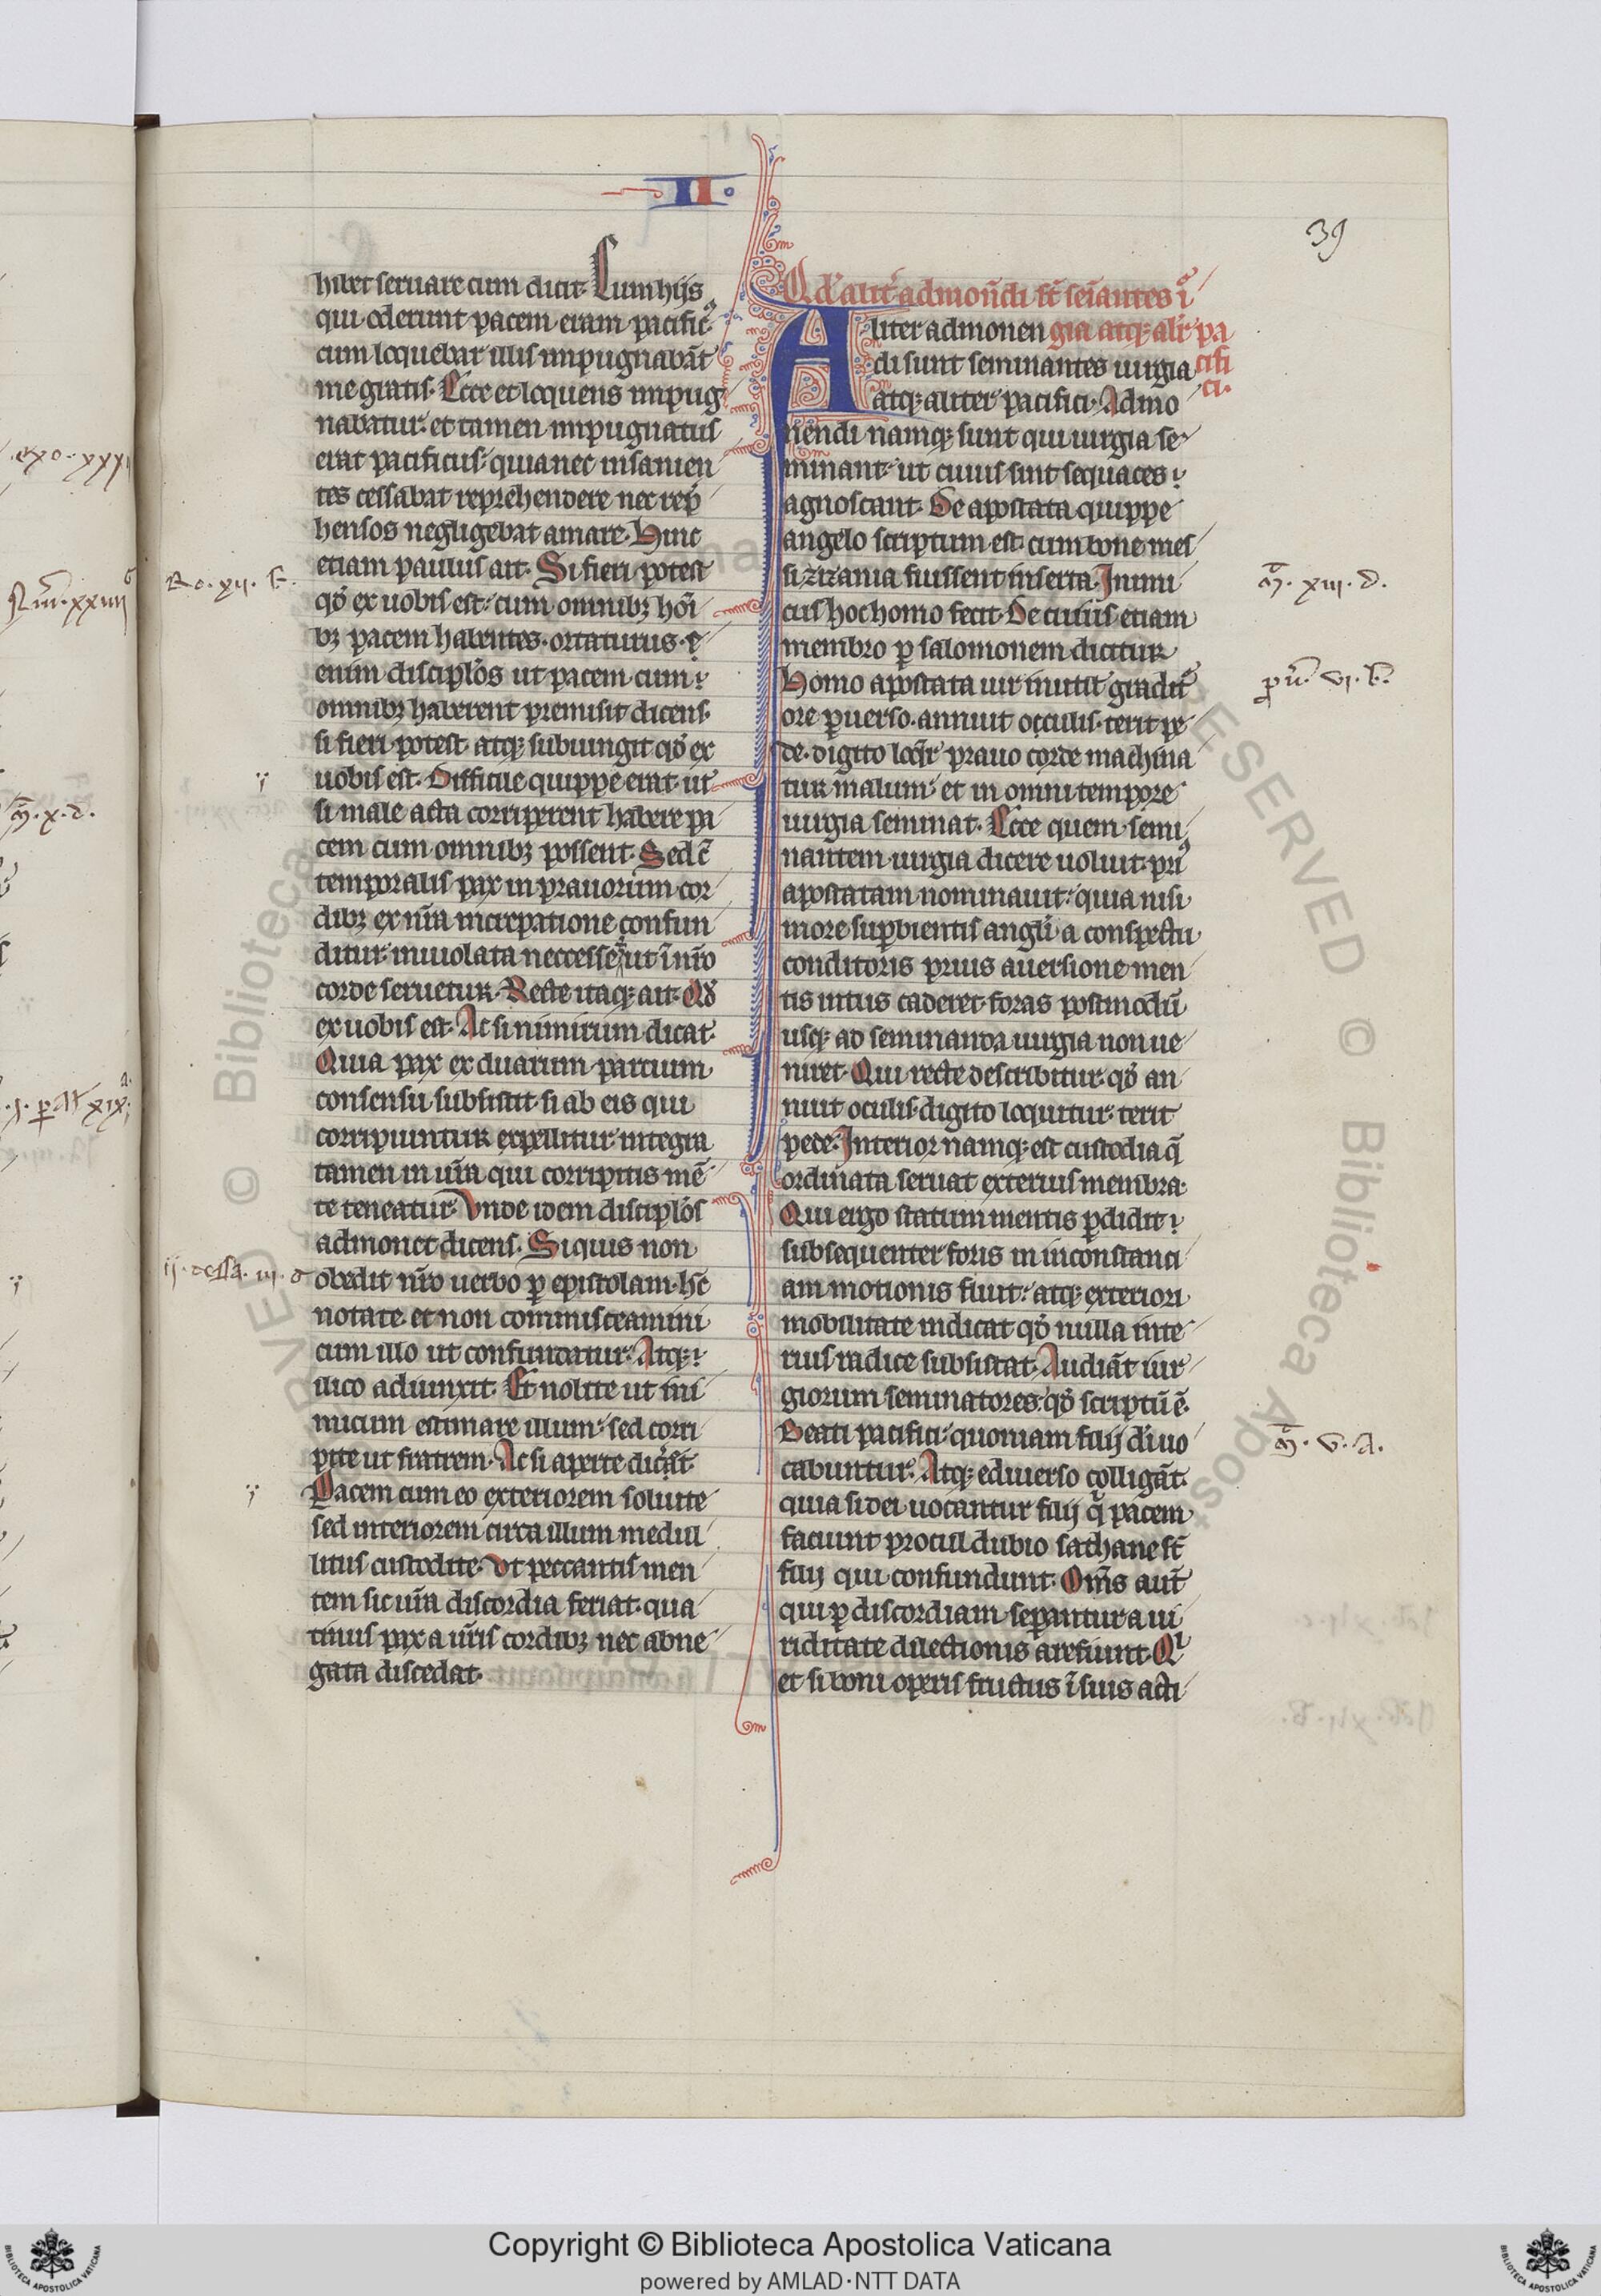 II.
39
hibet seruare cum dicit. Cum hijs
qui oderunt pacem eram pacific᷒
cum loquebar illis inpugnabāt
me gratis. Ecce et loquens inpug
nabatur. et tamen inpugnatus
erat pacificus. quia nec insanien
tes cessabat reprehendere nec rep̄
hensos negligebat amare. Hinc
etiam paulus ait. Si fieri potest
qđ ex uobis est. cum omnibꝫ hoī
bꝫ pacem habentes. ortaturus. ē
enim disciplos ut pacem cum
omnibꝫ haberent premisit dicens.
si fieri potest. atqꝫ subiungit qđ ex
uobis est. Difficile quippe erat. ut
si male acta corriperent habere pa
cem cum omnibꝫ possent. Sed c̄
temporalis pax in prauorum cor
dibꝫ ex nr̄a increpatione confun
ditur. inuiolata neccesse ē ut ī nr̄o
corde seruetur. Recte itaqꝫ ait. Qđ
ex uobis est. Ac si nimirum dicat.
Quia pax ex duarum partium
consensu subsistit. si ab eis qui
corripiuntur expellitur. integra
tamen in ur̄a qui corripitis mē
te teneatur. Vnde idem disciplos
admonet dicens. Siquis non
obedit nr̄o uerbo ꝑ epistolam. hc̄
notate. et non commisceamini
cum illo ut confundatur. Atqꝫ
ilico adiunxit. Et nolite ut ini
micum estimare illum. sed corri
pite ut fratrem. Ac si aperte dicat.
Pacem cum eo exteriorem soluite
sed interiorem circa illum medul
litus custodite. Vt peccantis men
tem sic ur̄a discordia feriat. qua
tinus pax a ur̄is cordibꝫ nec abne
gata discedat.
Qđ alit᷑ admonēdi sūt seīantes i᷑
gia atqꝫ alit᷑ pa
cifi
ci.
Aliter admonen
di sunt seminantes iurgia
atqꝫ aliter pacifici. Admo
nendi namqꝫ sunt qui iurgia se
minant. ut cuius sint sequaces
agnoscant. De apostata quippe
angelo scriptum est. cum bone mes
si zizania fuissent inserta. Inimi
cus hoc homo fecit. De cuius etiam
membro ꝑ salomonem dicitur
Homo apostata uir inutil᷑ gradit᷑
ore ꝑuerso. annuit occulis. terit pe
de. digito loqr̄ prauo corde machina
tur malum. et in omni tempore
iurgia seminat. Ecce quem semi
nantem iurgia dicere uoluit. pri᷒
apostatam nominauit. quia nisi
more suꝑbientis angli a conspectu
conditoris prius auersione men
tis intus caderet. foras postmodū
usqꝫ ad seminanda iurgia non ue
niret. Qui recte describitur. qđ an
nuit oculis. digito loquitur. terit
pede. Interior namqꝫ est custodia q̄
ordinata seruat exterius membra.
Qui ergo statum mentis ꝑdidit
subsequenter foris in inconstanci
am motionis fluit. atqꝫ exteriori
mobilitate indicat qđ nulla inte
rius radice subsistat. Audiāt iur
giorum seminatores. qđ scriptū ē.
Beati pacifici. quoniam filij di uo
cabuntur. Atqꝫ ediuerso colligāt.
quia si dei uocantur filij q̄ pacem
faciunt procul dubio sathane st̄
filij qui confundunt. Om̄s aut̄
qui ꝑ discordiam seꝑantur a ui
riditate dilectionis arefiunt. Qi
et si boni operis fructus ī suis acti
Ro. xii.
ii. tessa. iii. d
m̄. xiii. d.
ꝓu. vi. b.
m̄. v. a.
exo. xxxi
Num. xxiiii
m̄. x. d.
Copyright © Biblioteca Apostolica Vaticana
powered by AMLAD·NTT DATA